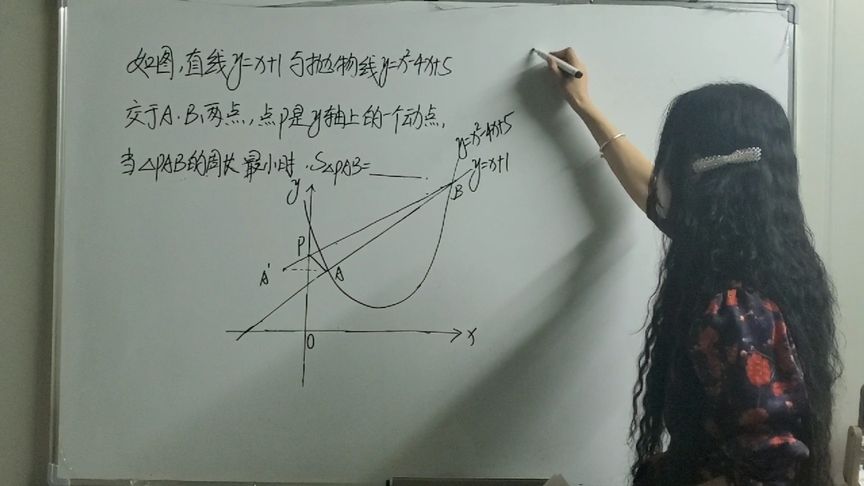 如图,直线y=x+1与抛物线y=x²-4x+5
交于A、B、两点,点P是y轴上的一个动点,
当△PAB的周长最小时,S△PAB=____.
y=x²-4x+5
y=x+1
y
B
P
A'
A
O
x